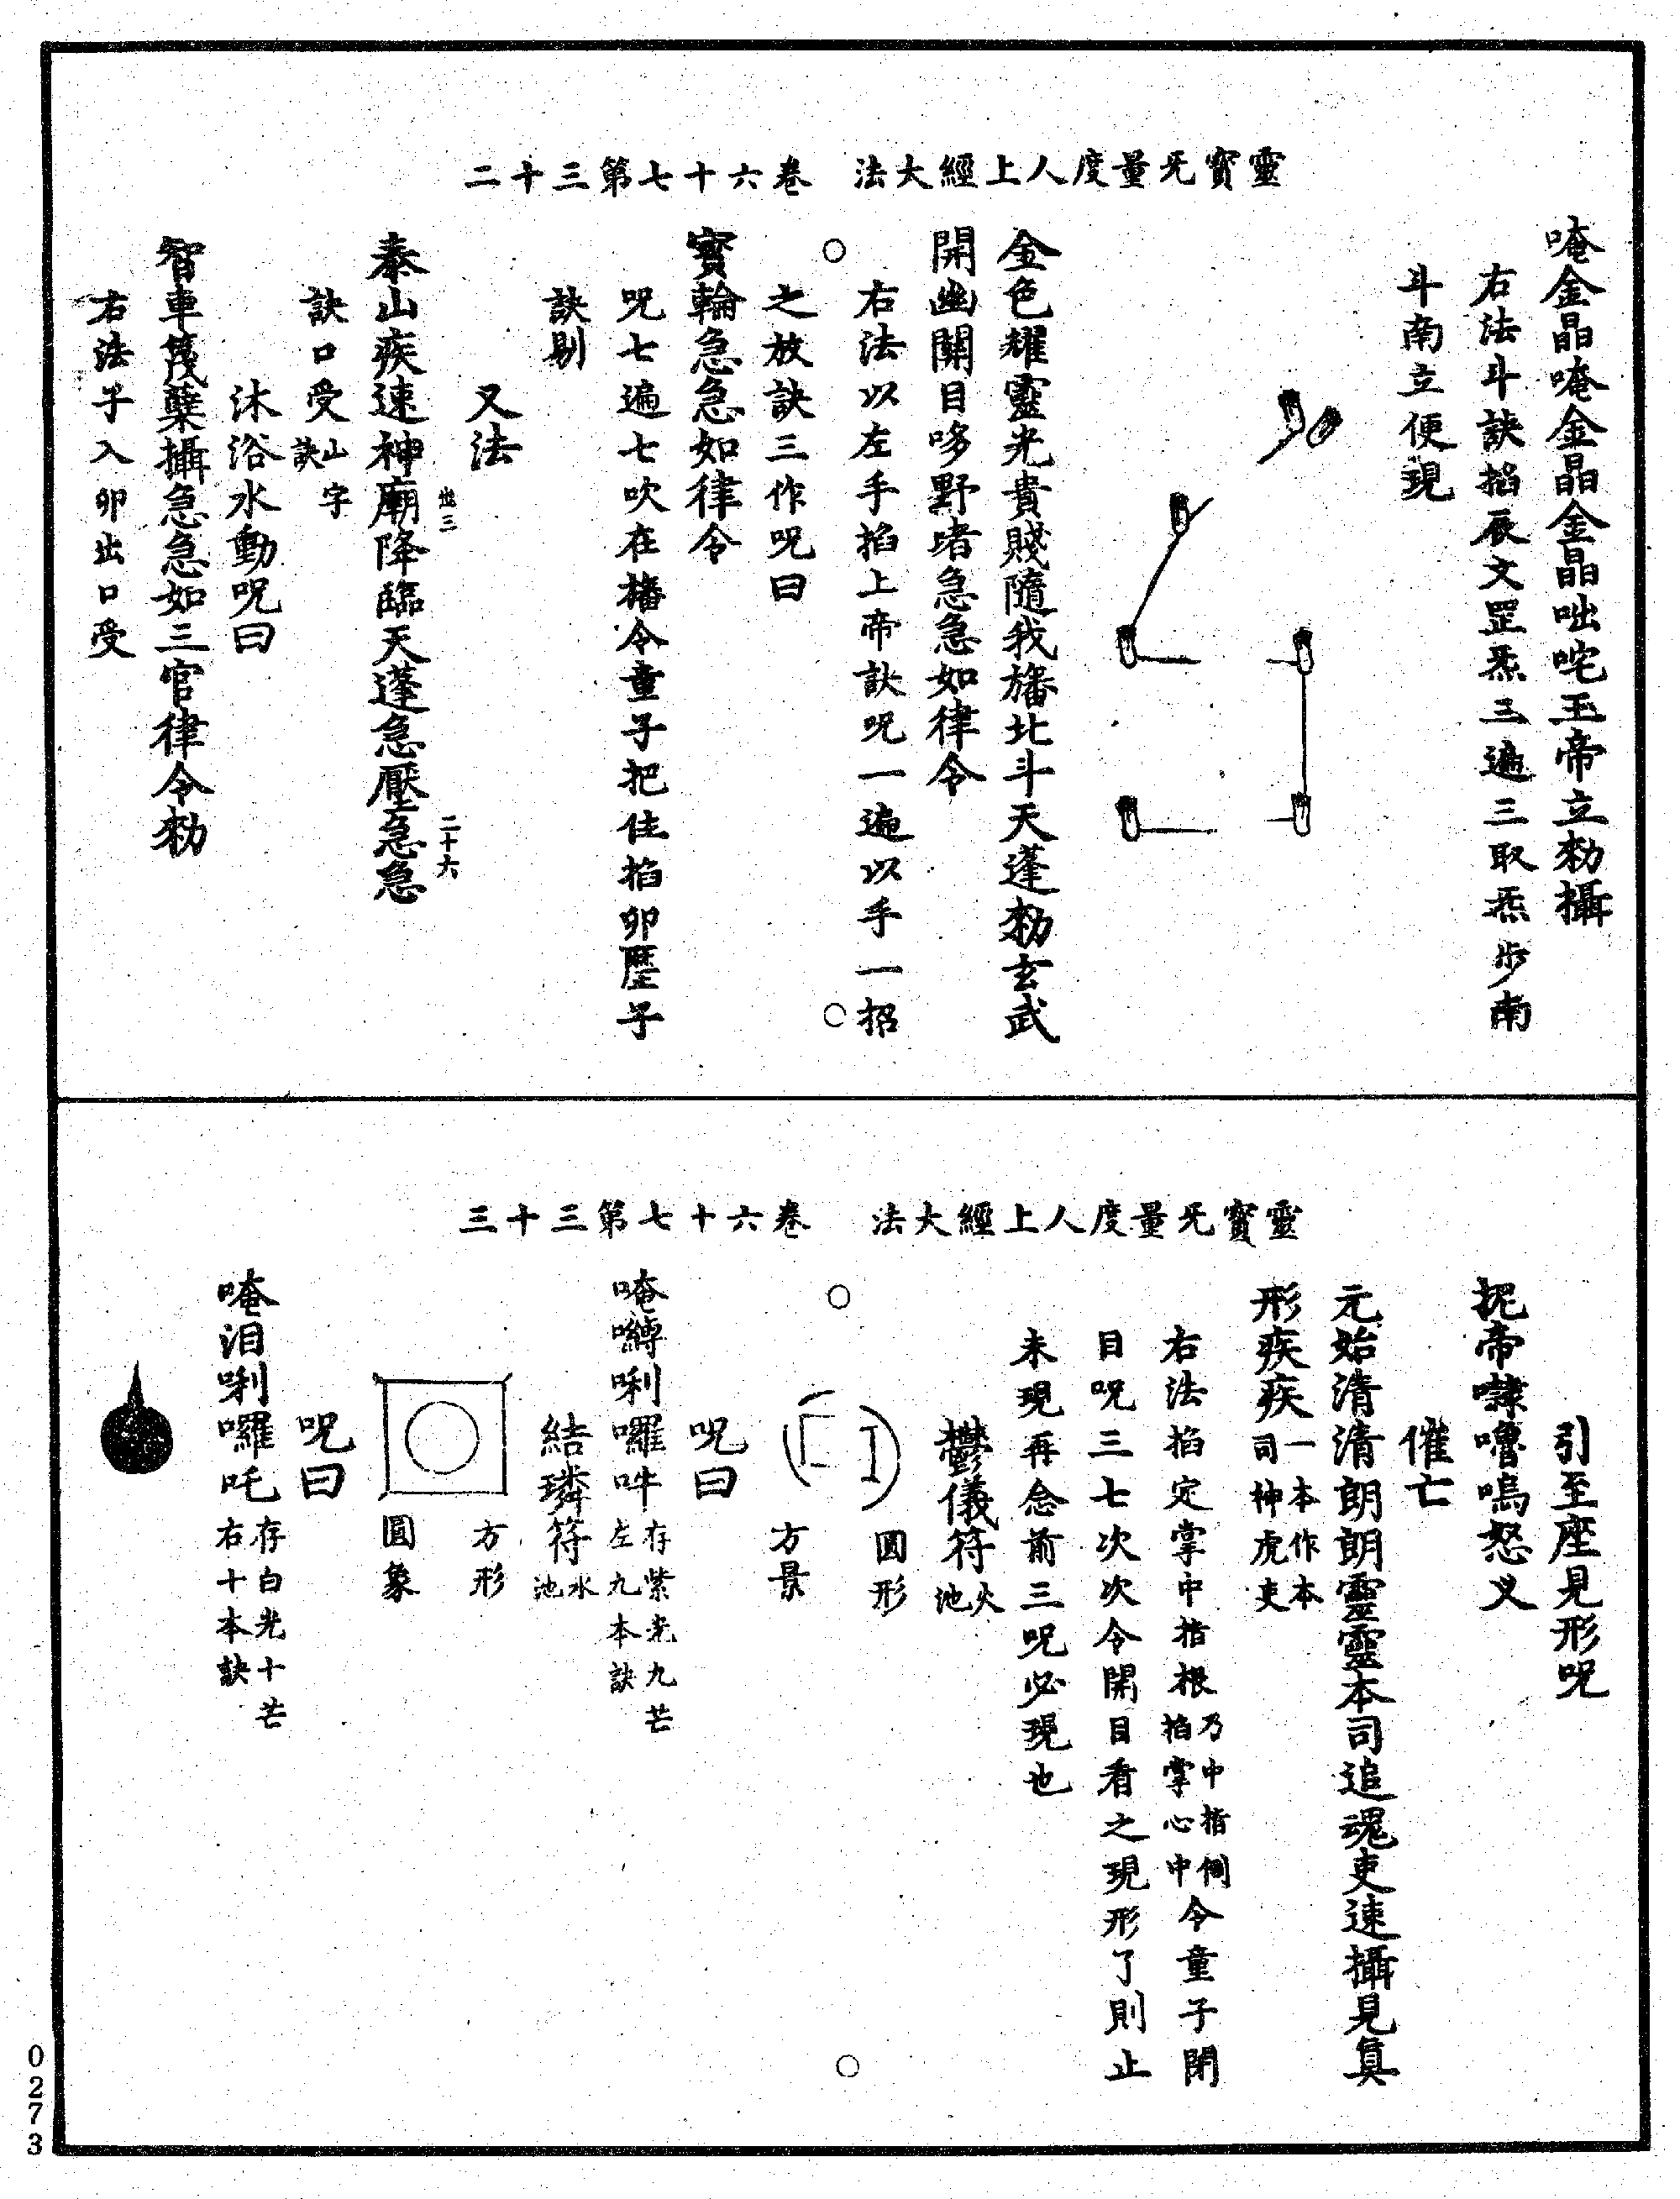 靈寶无量度人上經大法　卷六十七第三十二
唵金晶唵金晶金晶咄咤玉帝立勑攝
右法斗訣掐辰文罡炁三遍三取炁步南
斗南立便現
金色耀靈光貴賤隨我旛北斗天蓬勑玄武
開幽關目哆野堵急急如律令
右法以左手掐上帝訣呪一遍以手一招
之放訣三作呪曰
寶輪急急如律令
呪七遍七吹在旛令童子把住掐卯壓子
訣剔
又法
泰山疾速神廟降臨天蓬急壓急急
出三
二十六
訣口受山字訣
沐浴水動呪曰
智車篾蘗攝急急如三官律令勑
右法子入卯出口受
靈寶无量度人上經大法　卷六十七第三十三
引至座見形呪
抳帝嚕嗚怒义
催亡
元始清清朗朗靈靈本司追魂吏速攝見真
形疾疾一本作本司神虎吏
右法掐定掌中指根乃中指側掐掌心中令童子閉
目呪三七次次令開目看之現形了則止
未現再念前三呪必現也
鬱儀符火池
圓形
方景
呪曰
唵嚩唎囉吽存紫光九芒左九本訣
結璘符水池
方形
圓象
呪曰
唵泪唎囉吒存白光十芒右十本訣
0273